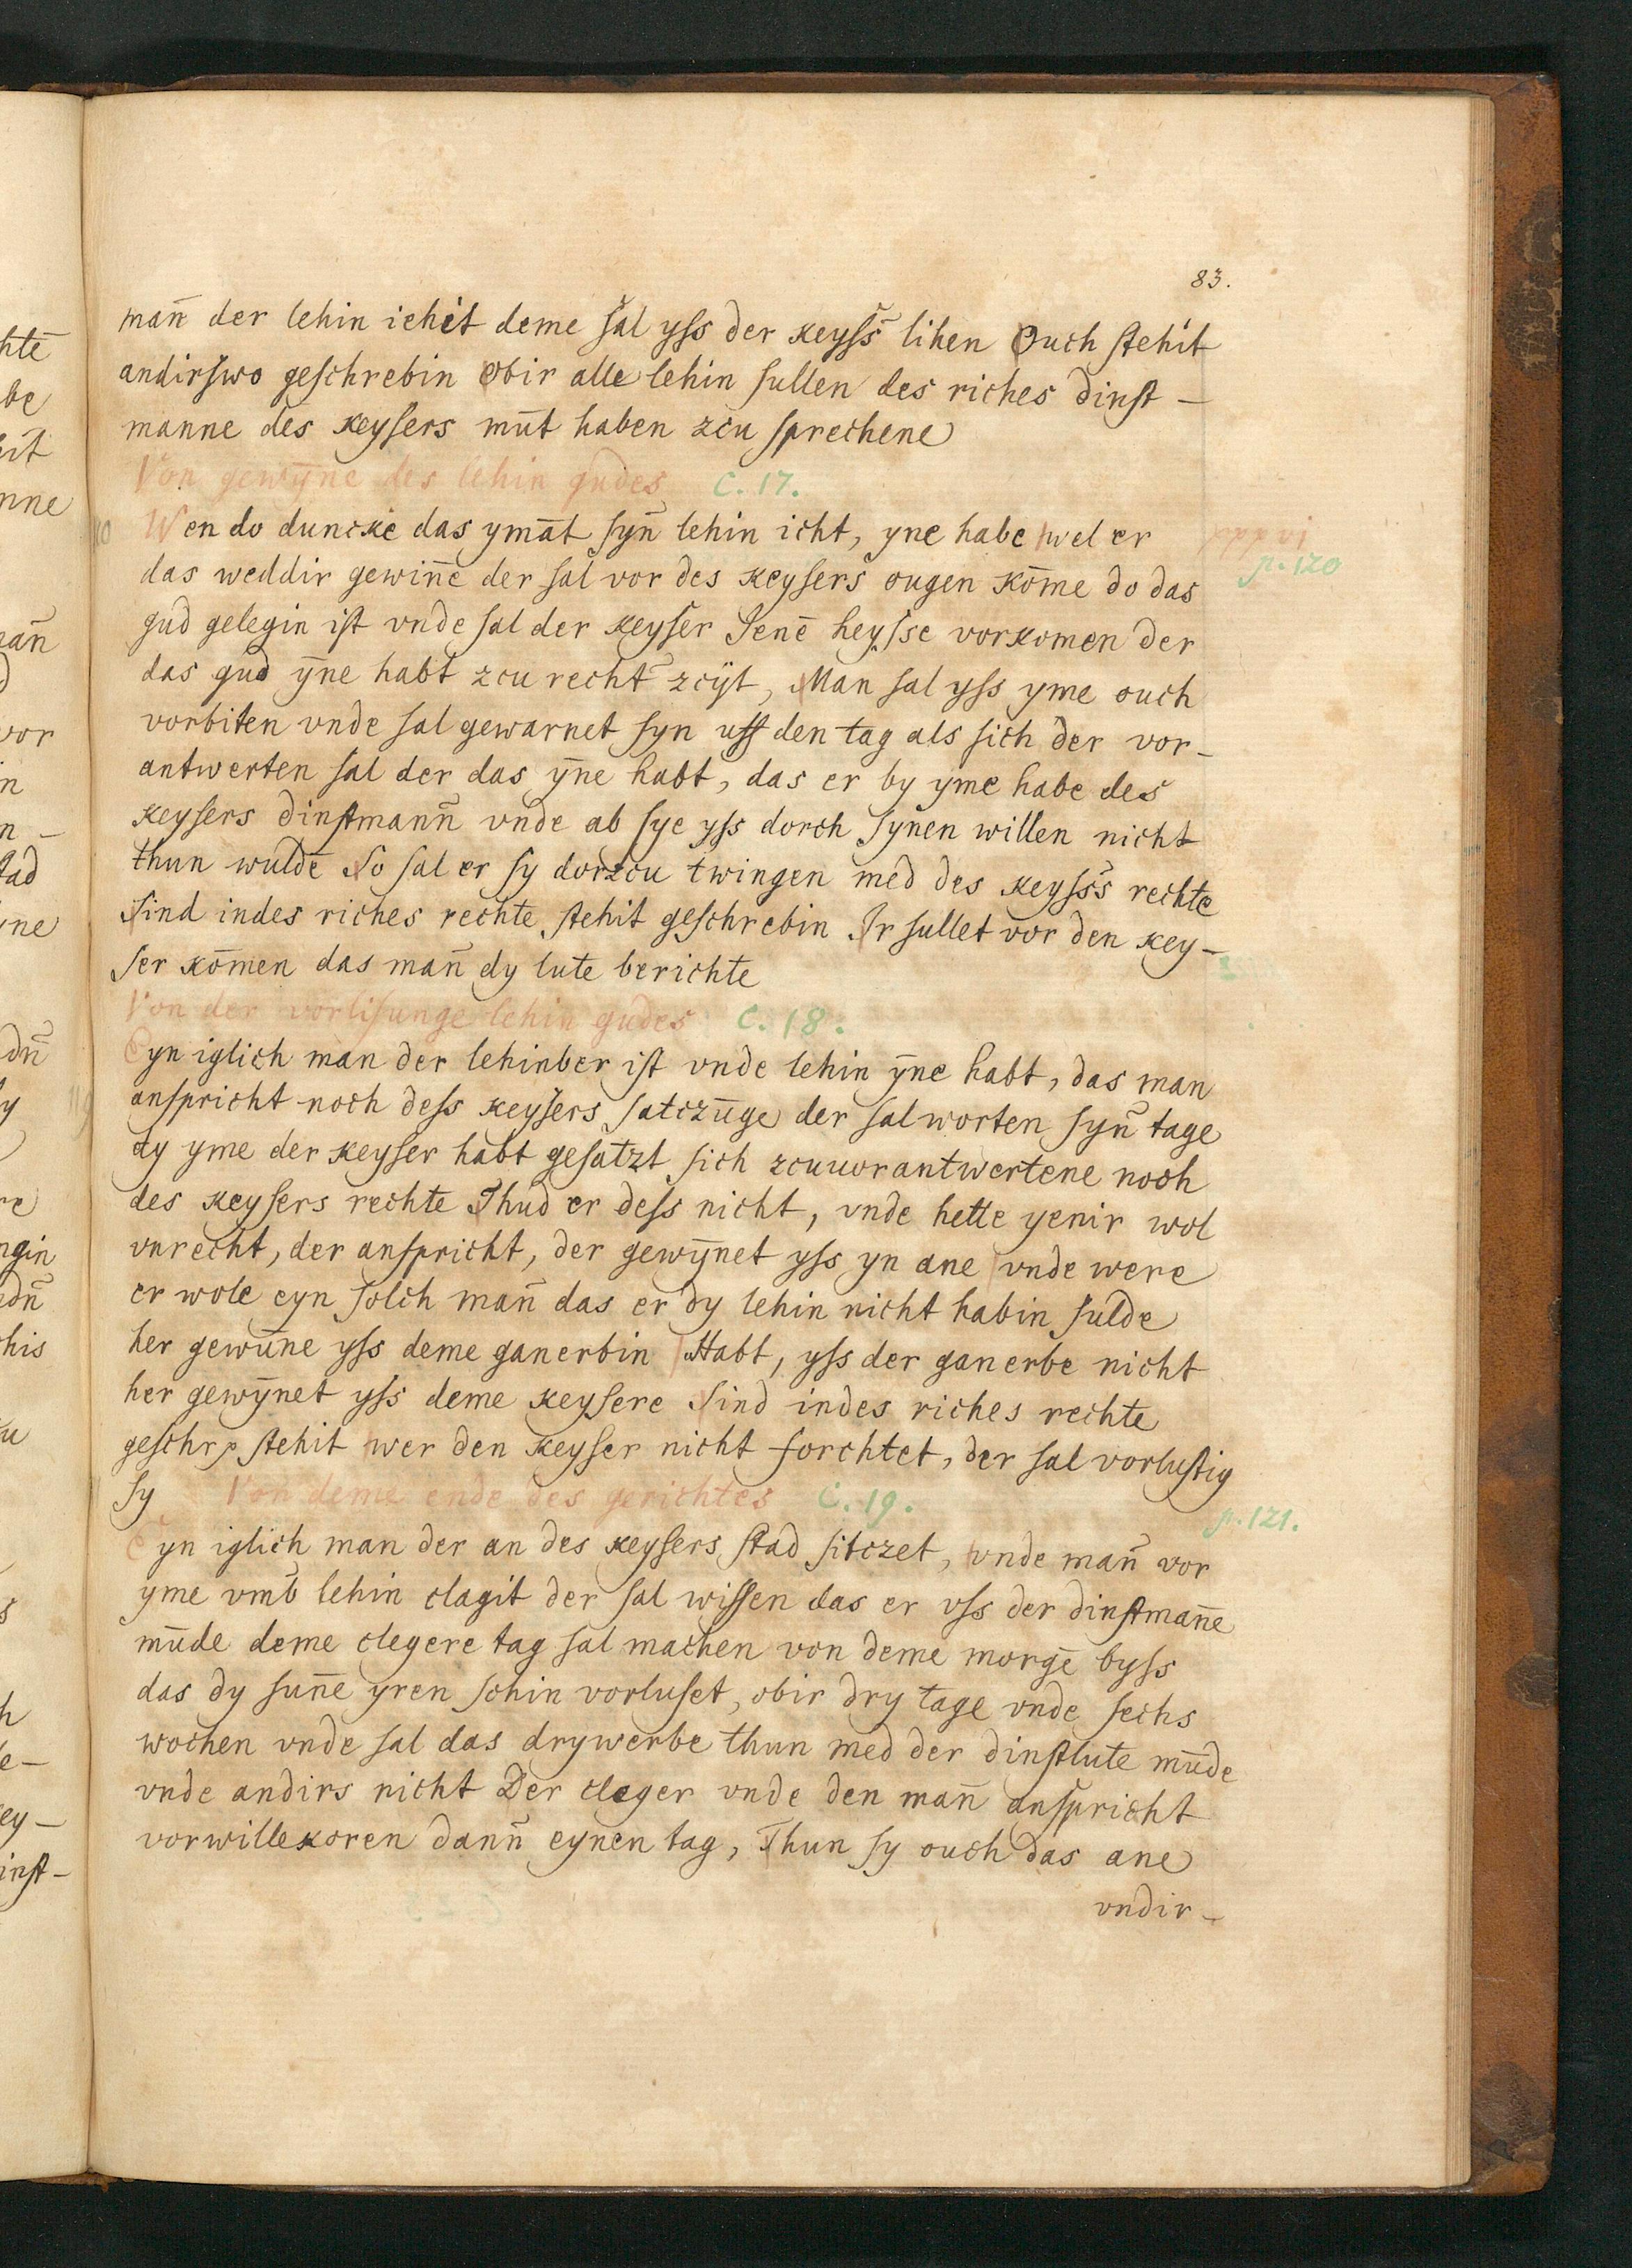 83.
man̄ der lehin iehit deme sal yss der keyss̄ lihen Ouch stehit
andirswo geschrebin obir alle lehin sullen des riches dinst-
manne des keysers mūt haben zcu sprechene
Von gewȳne des lehin gudes C. 17.
Wen do duncke das ymāt syn̄ lehin icht, yne habe wel er
pppvi
p. 120
das weddir gewin̄e der sal vor des keysers ougen kōme do das
gud gelegin ist vnde sal der keyser Jenē heysse vorkomen der
das gud ȳne habt zcu recht̄ zcÿt, Man sal yss yme ouch
vorbiten vnde sal gewarnet syn uff den tag als sich der vor-
antwerten sal der das ȳne habt, das er by yme habe des
keysers dinstmann̄ vnde ab sye yss dorch synen willen nicht
thun wuldē So sal er sy dorzcu twingen med des keyss̄s rechte
Sind indes riches rechte stehit geschrebin Ir sullet vor den key-
ser kōmen das man̄ dy lute berichte
Von der vorlisunge lehin gudes C. 18.
Eyn iglich man der lehinber ist vnde lehin ȳne habt, das man
anspricht noch dess keysers satczūge der sal worten syn̄ tage
dy yme der keyser habt gesatzt sich zcuuorantwertene noch
des keysers rechte Thud er dess nicht, vnde hette yenir wol
vnrecht, der anspricht, der gewȳnet yss yn ane vnde were
er wole eyn solch man̄ das er dy lehin nicht habin sulde
her gewūne yss deme ganerbin Habt, yss der ganerbe nicht
her gewȳnet yss deme keysere Sind indes riches rechte
geschrp stehit wer den keyser nicht forchtet, der sal vorlustig
sy Von deme ende des gerichtes C. 19.
p. 121.
Eyn iglich man der an des keysers stad sitczet, vnde man̄ vor
yme vmb̄ lehin clagit der sal wissen das er vss der dinstman̄e
mūde deme clegere tag sal machen von deme morgē byss
das dy sun̄e yren schin vorluset, obir dry tage vnde sechs
wochen vnde sal das drywerbe thun med der dinstlute mūde
vnde andirs nicht Der cleger vnde den man̄ anspricht
vorwillekoren dann̄ eynen tag, Thun sy ouch das ane
vndir-